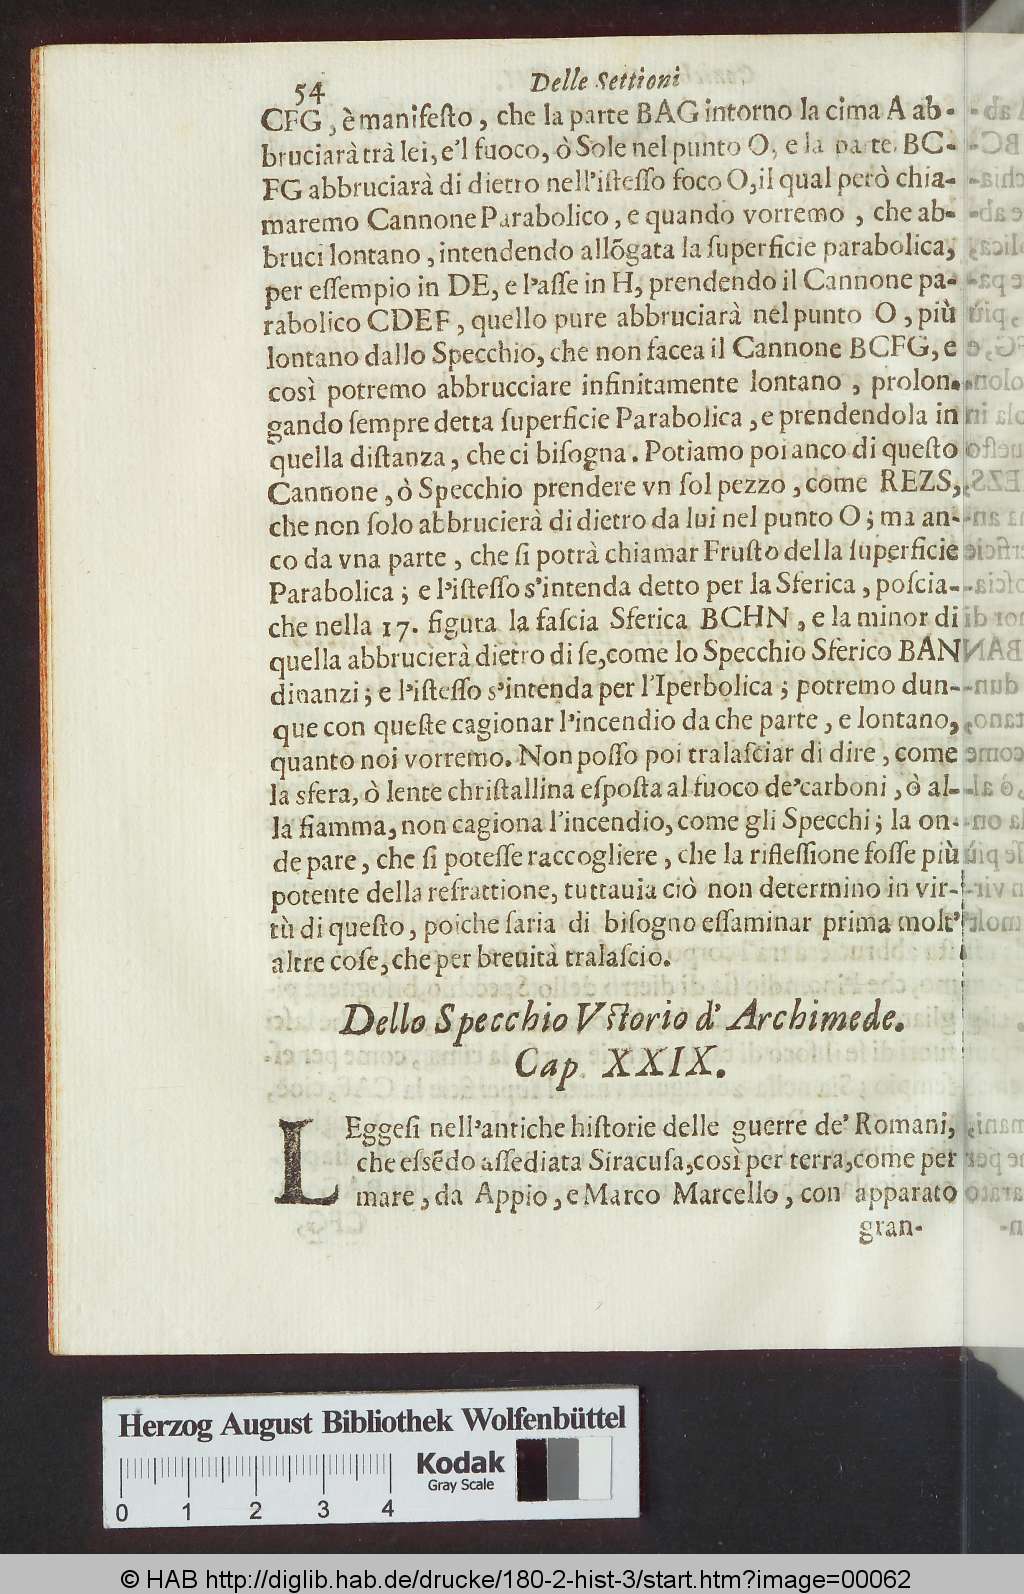 54 Delle Settioni
CFG, è manifeſto, che la parte BAG intorno la cima A ab-
bruciarà trà lei, e'l fuoco, ò Sole nel punto O, e la parte BC-
FG abbruciarà di dietro nell'iſteſſo foco O, il qual però chia-
maremo Cannone Parabolico, e quando vorremo, che ab-
bruci lontano, intendendo allõgata la ſuperficie parabolica,
per eſſempio in DE, e l'aſſe in H, prendendo il Cannone pa-
rabolico CDEF, quello pure abbruciarà nel punto O, più
lontano dallo Specchio, che non facea il Cannone BCFG, e
così potremo abbrucciare infinitamente lontano, prolon-
gando ſempre detta ſuperficie Parabolica, e prendendola in
quella diſtanza, che ci biſogna. Potiamo poi anco di queſto
Cannone, ò Specchio prendere vn ſol pezzo, come REZS,
che non ſolo abbrucierà di dietro da lui nel punto O; ma an-
co da vna parte, che ſi potrà chiamar Fruſto della ſuperficie
Parabolica; e l'iſteſſo s'intenda detto per la Sferica, poſcia-
che nella 17. figura la faſcia Sferica BCHN, e la minor di
quella abbrucierà dietro di ſe, come lo Specchio Sferico BAN
dinanzi; e l'iſteſſo s'intenda per l'Iperbolica; potremo dun-
que con queſte cagionar l'incendio da che parte, e lontano,
quanto noi vorremo. Non poſſo poi tralaſciar di dire, come
la sfera, ò lente chriſtallina eſpoſta al fuoco de'carboni, ò al-
la fiamma, non cagiona l'incendio, come gli Specchi; la on-
de pare, che ſi poteſſe raccogliere, che la rifleſſione foſſe più
potente della refrattione, tuttauia ciò non determino in vir-
tù di queſto, poiche ſaria di biſogno eſſaminar prima molt'
altre coſe, che per breuità tralaſcio.
Dello Specchio Vſtorio d'Archimede.
Cap. XXIX.
LEggeſi nell'antiche hiſtorie delle guerre de' Romani,
che eſsẽdo aſſediata Siracuſa, così per terra, come per
mare, da Appio, e Marco Marcello, con apparato
gran-
Herzog August Bibliothek Wolfenbüttel
Kodak
Gray Scale
0 1 2 3 4
© HAB http://diglib.hab.de/drucke/180-2-hist-3/start.htm?image=00062